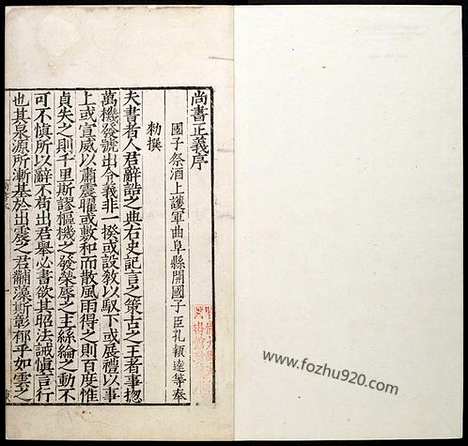 尚書正義序
國子祭酒上護軍曲阜縣開國子臣孔穎達等奉
勑撰
夫書者人君辭誥之典右史記言之策古之王者事揔
萬機發號出令義非一揆或設敎以馭下或展禮以事
上或宣威以肅震曜或敷和而散風雨得之則百度惟
貞失之則千里斯謬樞機之發榮辱之主絲綸之動不
可不慎所以辭不苟出君舉必書欲其昭法誡慎言行
也其泉源所漸基於出震之君黼藻斯彰郁乎如雲之
www.fozhu920.com